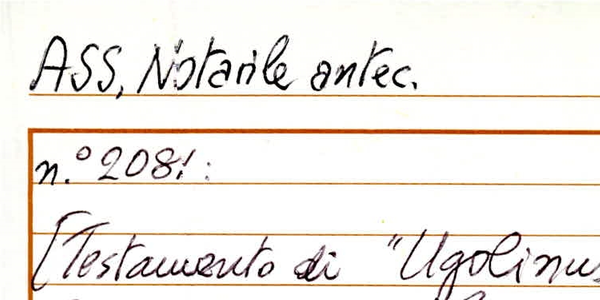 ASS, Notarile antec.
n.° 208!:
[Testamento di "Ugolinus